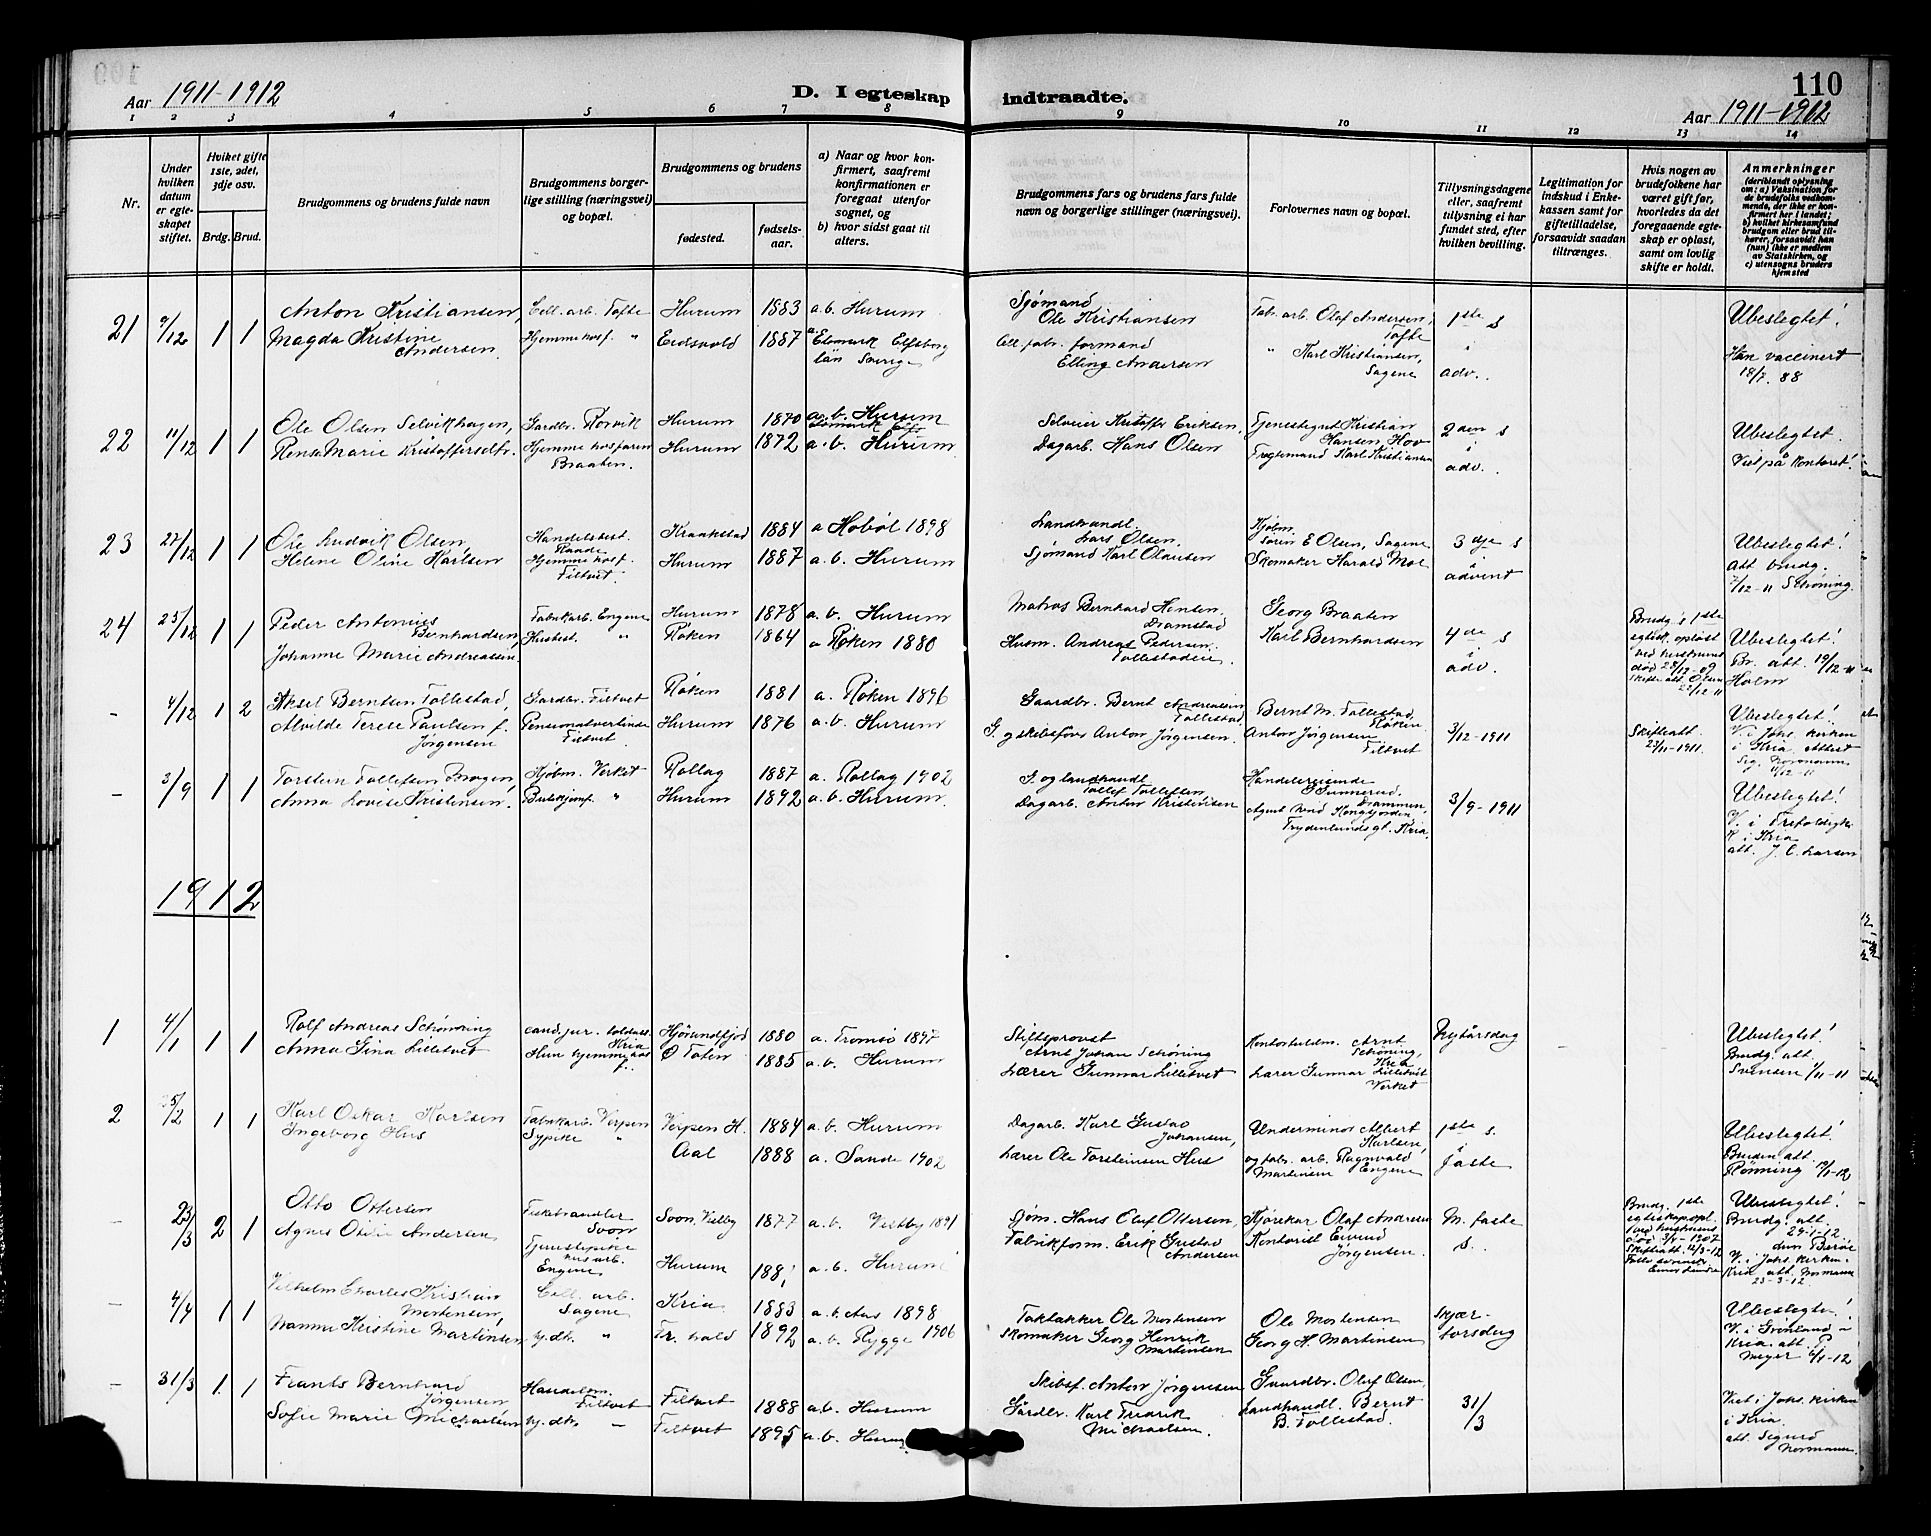 Aar 1911-1912
D. I egteskap
indtraadte.
110
Aar 1911-1912
1 2 3 4 5 6 7 8 9 10 11 12 13 14
Nr.
Under hvilken datum er egteskapet stiftet.
Hviket gifte 1ste, 2det, 3dje osv.
Brdg. Brud.
Brudgommens og brudens fulde navn
Brudgommens borgerlige stilling (næringsvei) og bopæl.
Brudgommens og brudens
fødested.
fødselsaar.
a) Naar og hvor konfirmert, saafremt konfirmationen er foregaat utenfor sognet, og
b) hvor sidst gaat til alters.
Brudgommens fars og brudens fars fulde navn og borgerlige stillinger (næringsvei).
Forlovernes navn og bopæl.
Tillysningsdagene eller, saafremt tillysning ei har fundet sted, efter hvilken bevilling.
Legitimation for indskud i Enkekassen samt for giftetilladelse, forsaavidt saadan tiltrænges.
Hvis nogen av brudefolkene har været gift før, hvorledes da det foregaaende egteskap er opløst, samt om lovlig skifte er holdt.
Anmerkninger
(deriblandt oplysning om: a) Vaksination for de brudefolks vedkommende, der ikke er konfirmert her i landet; b) hvilket kirkesamfund brudgom eller brud tilhører, forsaavidt han (hun) ikke er medlem av Statskirken, og c) utensogns bruders hjemsted
21 9/12 1 1 Anton Kristiansen, Cell. arb. Tofte Hurum 1883 a.b. Hurum Sjømand Ole Kristiansen Fab. arb. Olaf Andersen, Tofte 1ste s i adv. Ubeslegtet!
Magda Kristine Andersen Hjemme hos f. " Eidsvold 1887 a. Edsmark Elfsborg län Sverige Cell. fabr. formand Elling Andersen " Karl Kristiansen, Sagene Han vaccinert 18/7. 88
22 11/12 1 1 Ole Olsen Selvikhagen, Gardbr. Rørvik Hurum 1870 a.b. Hurum Selveier Kristoffer Eriksen, Tjenestegut Kristian Hansen, Hov 2den s i adv. Ubeslegtet.
Rensa Marie Kristoffersdtr. Hjemme hos faren Braaten. Hurum 1872 a.b. Hurum Dagarb. Hans Olsen Fragtemand Karl Kristiansen Viet på kontoret!
23 27/12 1 1 Ole Ludvik Olsen Handelsbest. Raade Kraakstad 1884 a Hobøl 1898 Landhandl. Lars Olsen, Kjøbm. Søren E Olsen, Sagene 3dje s i advent Ubeslegtet!
Helene Oline Karlsen Hjemme hos f. Filtvet. Hurum 1887 a.b. Hurum Sjømand Karl Olausen Skomaker Harald Moe Att brudg. 7/12-11 Schøning.
24 25/12 1 1 Peder Antonius Bernhardsen, Fabrikarb. Engene Hurum 1878 a.b. Hurum Matros Bernhard Hansen, Dramstad Georg Braaten 4de s i adv. Brudg.'s 1ste egtesk. opløst ved hustruens død 28/12-09 Skifte att. Olsen 22/12-11 Ubeslegtet!
Johanne Marie Andreassen. Husbest. " Røken 1864 a Røken 1880 Husm. Andreas Pedersen Tollestadeie. Karl Bernhardsen Br. att. 19/12-11 Holm
- 4/12 1 2 Aksel Berntsen Tollestad, Gardbr. Filtvet Røken 1881 a. Røken 1896 Gaardbr. Bernt Andreassen Tollestad. Bernt M. Tollestad, Røken 3/12-1911 Skifteatt. 27/11-1911. Ubeslegtet!
Alvilde Terese Paulsen f. Jørgensen Pensionatvertinde Filtvet Hurum 1876 a.b. Hurum G. og skibsfører Anton Jørgensen. Anton Jørgensen Filtvet V. i Johs. kirken i Kria. Attest Sig. Normann 4/12-11
- 3/9 1 1 Torstein Tollefsen Kjøbm. Verket Rollag 1887 a. Rollag 1902 G. og landhandl. Tollef Tollefsen Handelsreisende Gunnerud. Drammen, 3/9-1911 Ubeslegtet!
Anna Lovise Kristensen. Butikjomf. " Hurum 1892 a.b. Hurum. Dagarb. Anton Kristensen Agent Arnd Kongsfjorden Frydenlunds gt. Kria. V. i Trefoldighk K. i Kria att. J. C. Larsen
1912
1 4/1 1 1 Rolf Andreas Schønning cand. jur. Kria Hjørundfjord 1880 a. Tromsø 1897 Stiftsprovst Arnt Johan Schøning Kontorholdm. Arnt Schøning, Kria Nytårsdag Ubeslegtet!
Anna Gina Lilletvet Hun hjemme hos f. Ø Toten 1885 a.b. Hurum Lærer Gunnar Lilletvet Lærer Gunnar Lilletvet Verket Brudg. att. Svensen 1/11-11
2 25/2 1 1 Karl Oskar Karlsen Fabrikarb. Verpen Verpen H. 1884 a.b. Hurum Dagarb. Karl Gustav Johansen, Underminør Albert Karlsen, 1ste s. i faste Ubeslegtet!
Ingeborg Hus Sypike " Aal 1888 a. Sande 1902 Lærer Ole Torsteinsen Hus og fabr. arb. Ragnvald Martinsen Engene Bruden att. Rønning
- 23/3 2 1 Otto Ottersen Fiskehandler Soon Soon, Vestby 1877 a.b. Vestby 1891 Sjøm. Hans Oluf Ottersen, Kjørekar Olaf Andersen M. faste s. Brudg. 1ste egteskap opl. ved hustruens død 3/1-1907 Skifteatt. 12/3-12 Ubeslegtet!
Agnes Otilie Andersen Engene Hurum 188 a.b. Hurum Fabrikform. Erik Gustav Andersen Kontorist Eivind Jørgensen. Brudg. att. 29-1-12 V. i Johs. kirken. Kria att. Normann 23-3-12.
- 4/4 1 1 Vilhelm Charles Kristian Mortensen, Cell. arb. Sagene Kria 1883 a.b. Aas 1898 Taktækker Ole Mortensen Ole Mortensen Skjærtorsdag Ubeslegtet!
Nanna Kristine Martinsen hj. dtr. " Fr. hald 1892 a.b. Rygge 1906 Skomaker Georg Henrik Martinsen Georg H. Martinsen V. i Grønland i Kria. att. P. Meyer
- 31/3 1 1 Frants Bernhard Jørgensen Handelsm. Filtvet Filtvet 1888 a.b. Hurum Skibsf. Anton Jørgensen Gaardbr. Oluf Olsen, 31/3 Viet i Johs. kirken i Kria.
Sofie Marie Michaelsen hj. dtr. - Filtvet 1895 a.b. Hurum Gårdbr. Karl Fredrik Michaelsen. Landhandl. Bernt B. Tollestad. att. Sigurd Normann.